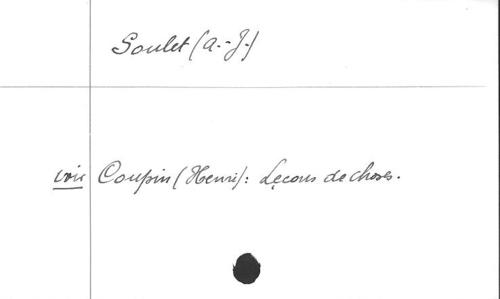 Soulet (A.-J.)
voir Coupin (Henri): Leçons de choses.